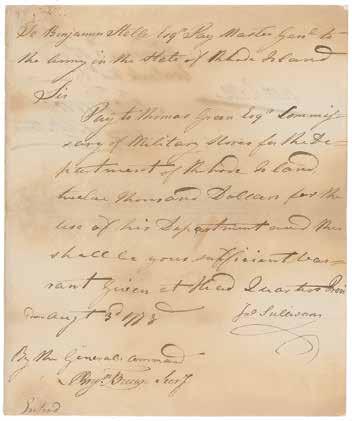 To Benjamin Stelle Esqr. Pay Master Genl. to
the Army in the State of Rhode Island
Sir
Pay to Thomas Green Esqr. Commis-
sary of Military Stores for the De-
partment of Rhode Island
twelve thousand Dollars for the
use of his Department and this
shall be your sufficient War-
rant Given at Head Quarters Provi
Augt 3d 1778
Jno Sullivan
By the Generals command
Secy
Entred